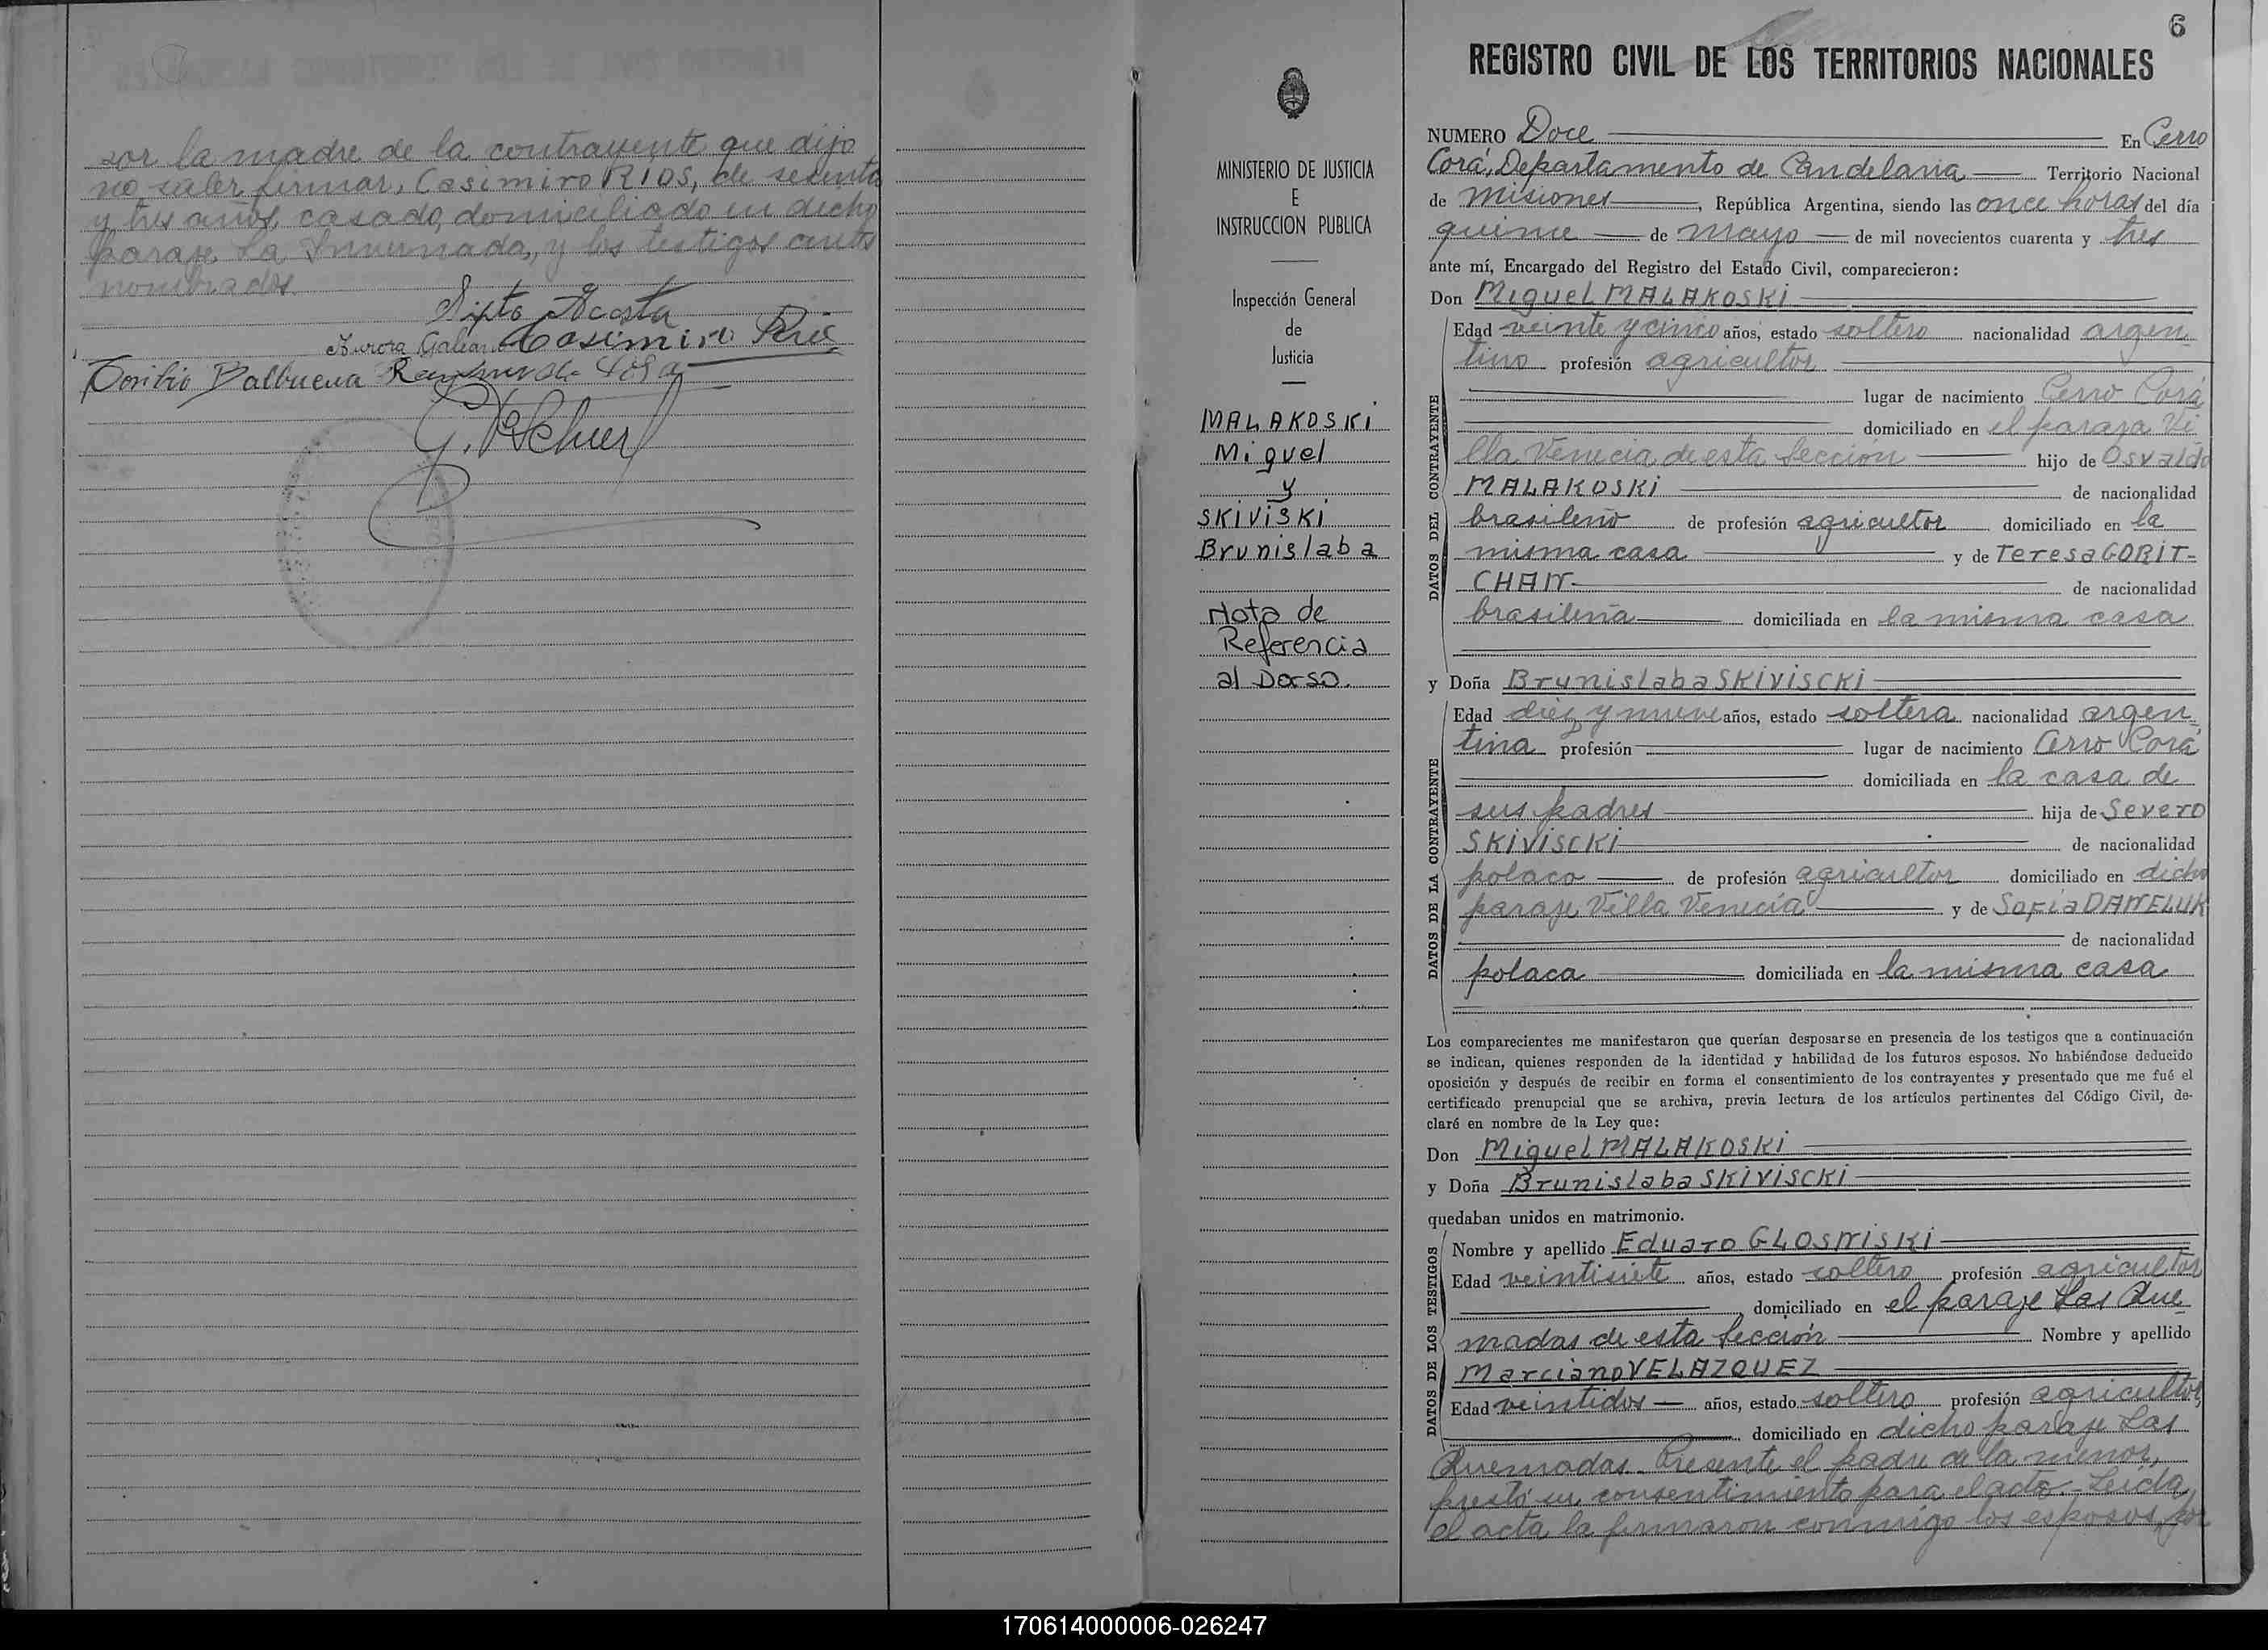 por la madre de la contrayente que dijo
no saber firmar, Casimiro RIOS, de sesenta
y tres años, casado, domiciliado en dicho
paraje La Invernada, y los testigos antes
nombrados.
Sixto Acosta
Aurora Galeano Casimiro Rios
Toribio Balbuena
6
REGISTRO CIVIL DE LOS TERRITORIOS NACIONALES
MINISTERIO DE JUSTICIA
E
INSTRUCCION PUBLICA
Inspección General
de
Justicia
MALAKOSKI
Miguel
y
SKIVISKI
Brunislaba
Nota de
Referencia
al Dorso.
NUMERO Doce En Cerro
Corá, Departamento de Candelaria Territorio Nacional
de Misiones, República Argentina, siendo las once horas del día
quince de mayo de mil novecientos cuarenta y tres
ante mí, Encargado del Registro del Estado Civil, comparecieron:
Don Miguel MALAKOSKI
Edad veinte y cinco años, estado soltero nacionalidad argen-
tino profesión agricultor
lugar de nacimiento Cerro Corá
domiciliado en el paraje Vi
lla Venecia de esta Sección hijo de Osvaldo
MALAKOSKI de nacionalidad
brasileño de profesión agricultor domiciliado en la
misma casa y de Teresa GORIT-
CHAN de nacionalidad
brasileña domiciliada en la misma casa
DATOS DEL CONTRAYENTE
y Doña Brunislaba SKIVISCKI
Edad diez y nueve años, estado soltera nacionalidad argen-
tina profesión lugar de nacimiento Cerro Corá
domiciliada en la casa de
sus padres hija de Severo
SKIVISCKI de nacionalidad
polaco de profesión agricultor domiciliado en dicho
paraje Villa Venecia y de Sofia DANELUK
de nacionalidad
polaca domiciliada en la misma casa
DATOS DE LA CONTRAYENTE
Los comparecientes me manifestaron que querían desposarse en presencia de los testigos que a continuación
se indican, quienes responden de la identidad y habilidad de los futuros esposos. No habiéndose deducido
oposición y después de recibir en forma el consentimiento de los contrayentes y presentado que me fué el
certificado prenupcial que se archiva, previa lectura de los artículos pertinentes del Código Civil, de-
claré en nombre de la Ley que:
Don Miguel MALAKOSKI
y Doña Brunislaba SKIVISCKI
quedaban unidos en matrimonio.
Nombre y apellido Eduaro GLOSNISKI
Edad veintisiete años, estado soltero profesión agricultor
domiciliado en el paraje Las Que
madas de esta Sección Nombre y apellido
Marciano VELAZQUEZ
Edad veintidos años, estado soltero profesión agricultor,
domiciliado en dicho paraje Las
DATOS DE LOS TESTIGOS
Quemadas. Presente el padre de la menor,
prestó su consentimiento para el acto.- Leida
el acta la firmaron conmigo los esposos, por
170614000006-026247